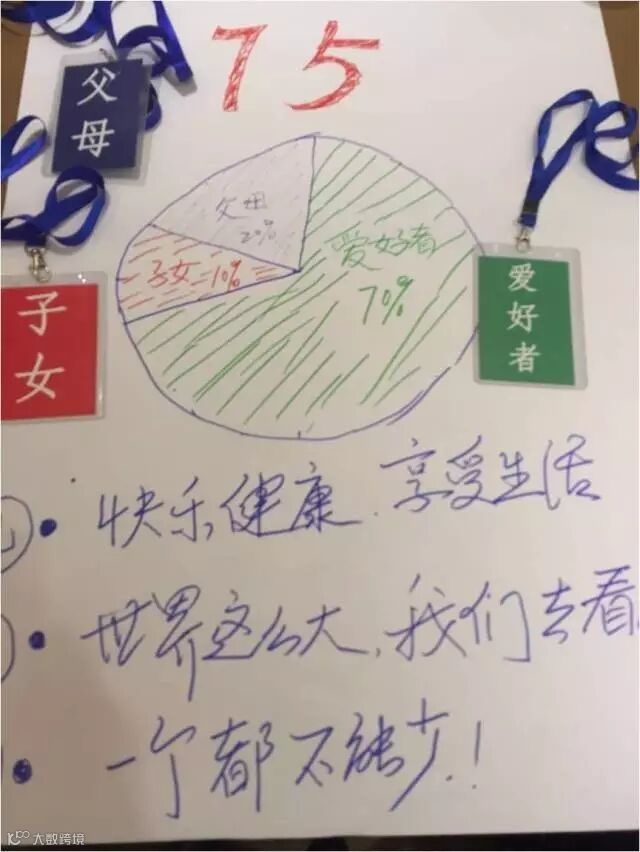 75
父母
父母
20%
子女 10%
爱好者
70%
子女
爱好者
快乐健康、享受生活
世界这么大,我们去看
一个都不能少!
大数跨境